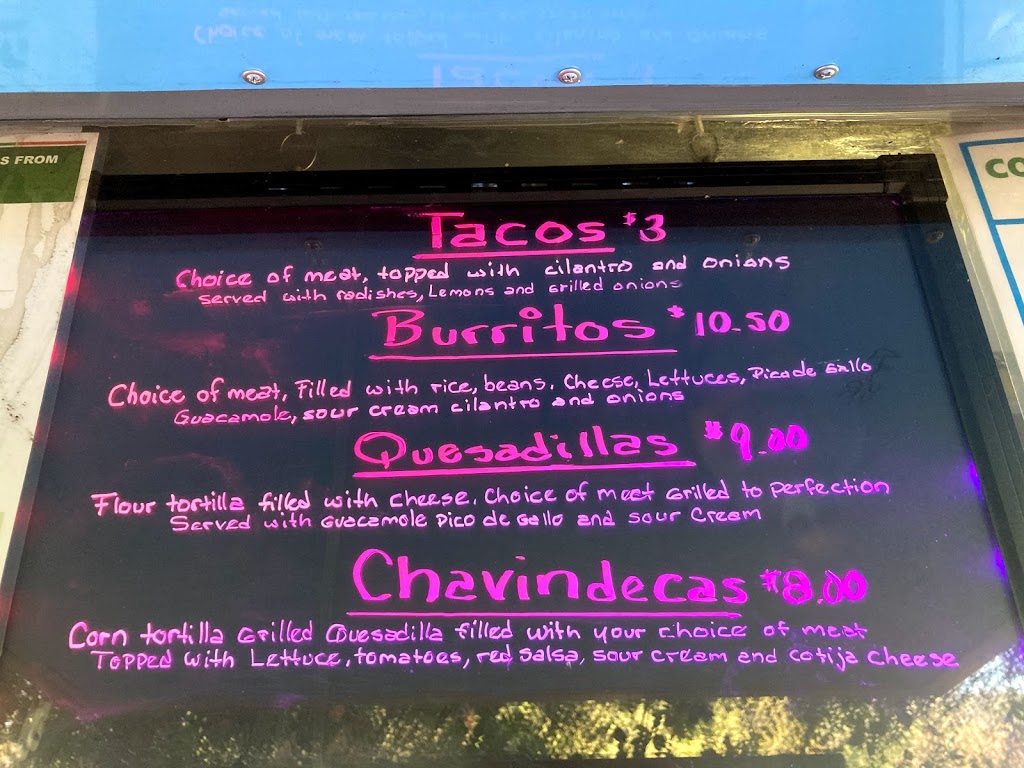 S FROM
CO
Tacos $3
Choice of meat, topped with cilantro and onions
served with radishes, Lemons and Grilled onions
Burritos $10.50
Choice of meat, Filled with rice, beans, Cheese, Lettuces, Pico de Gallo
Guacamole, sour cream cilantro and onions
Quesadillas $9.00
Flour tortilla filled with cheese, Choice of meat Grilled to perfection
Served with Guacamole Pico de Gallo and sour Cream
Chavindecas $8.00
Corn tortilla Grilled Quesadilla filled with your choice of meat
Topped with Lettuce, tomatoes, red salsa, sour cream and cotija cheese